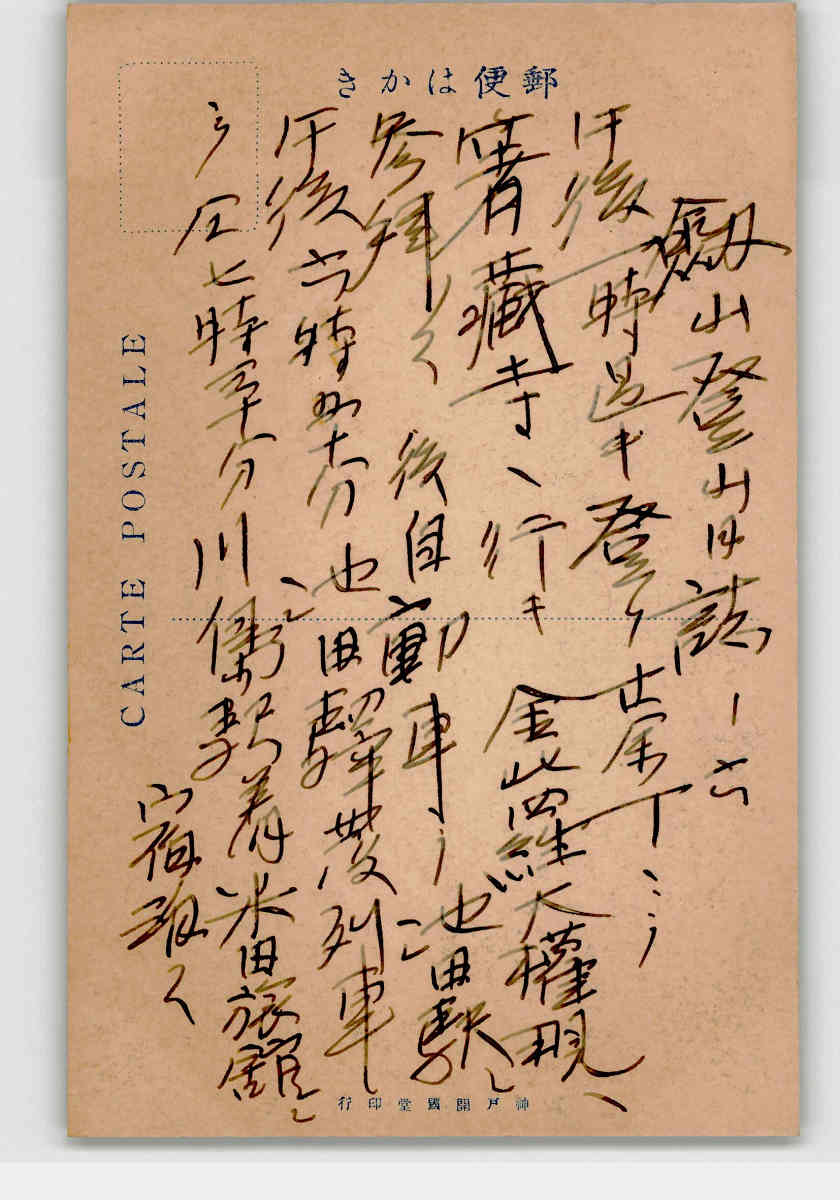 郵便はかき
劔山登山日誌ノ六
午後一時過ギ登リ 下ニテ
寳藏寺ヘ行キ 金比羅大權現ヘ
参拜シ 後自動車ニテ池田駅ニ
午後六時四十分池田駅発列車
ニテ 仝七時 十分川 駅着米田旅館ニ
宿泊ス
CARTE POSTALE
神戸開國堂印行